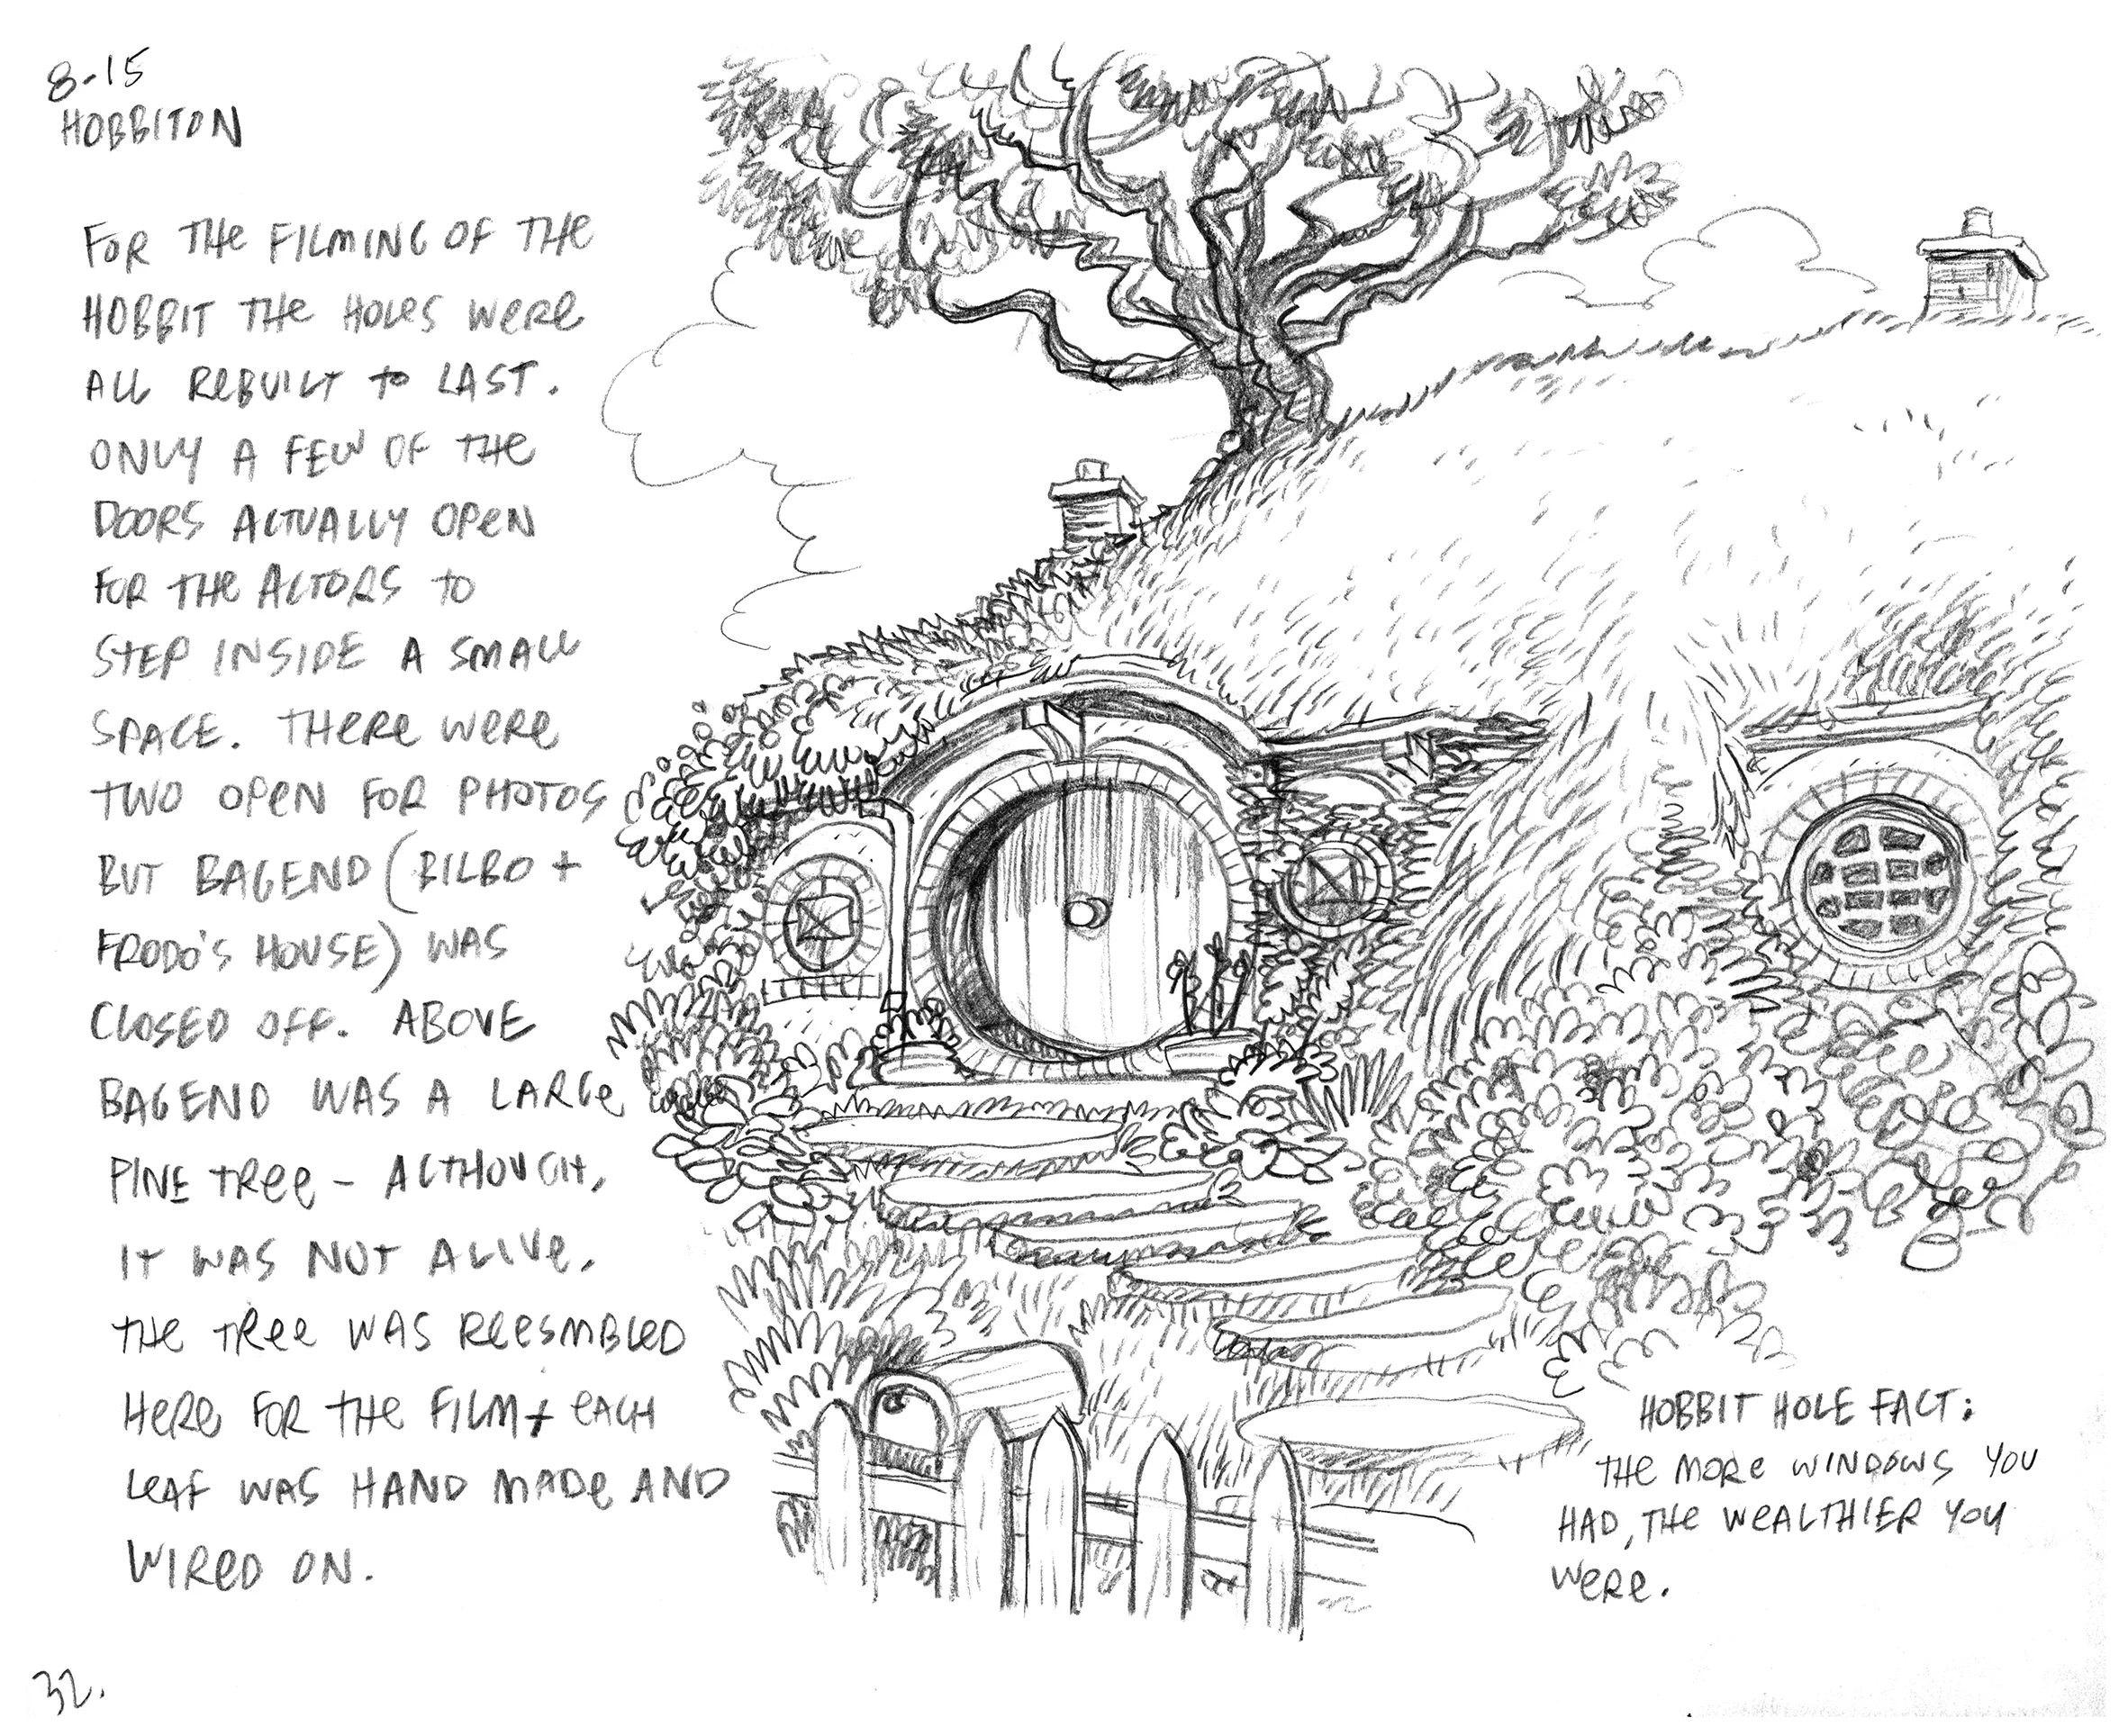 8-15
HOBBITON
FOR THE FILMING OF THE
HOBBIT THE HOLES WERE
ALL REBUILT TO LAST.
ONLY A FEW OF THE
DOORS ACTUALLY OPEN
FOR THE ACTORS TO
STEP INSIDE A SMALL
SPACE. THERE WERE
TWO OPEN FOR PHOTOS
BUT BAGEND (BILBO +
FRODO'S HOUSE) WAS
CLOSED OFF. ABOVE
BAGEND WAS A LARGE
PINE TREE - ALTHOUGH,
IT WAS NOT ALIVE.
THE TREE WAS REESMBLED
HERE FOR THE FILM + EACH
LEAF WAS HAND MADE AND
WIRED ON.
HOBBIT HOLE FACT:
THE MORE WINDOWS YOU
HAD, THE WEALTHIER YOU
WERE.
32.